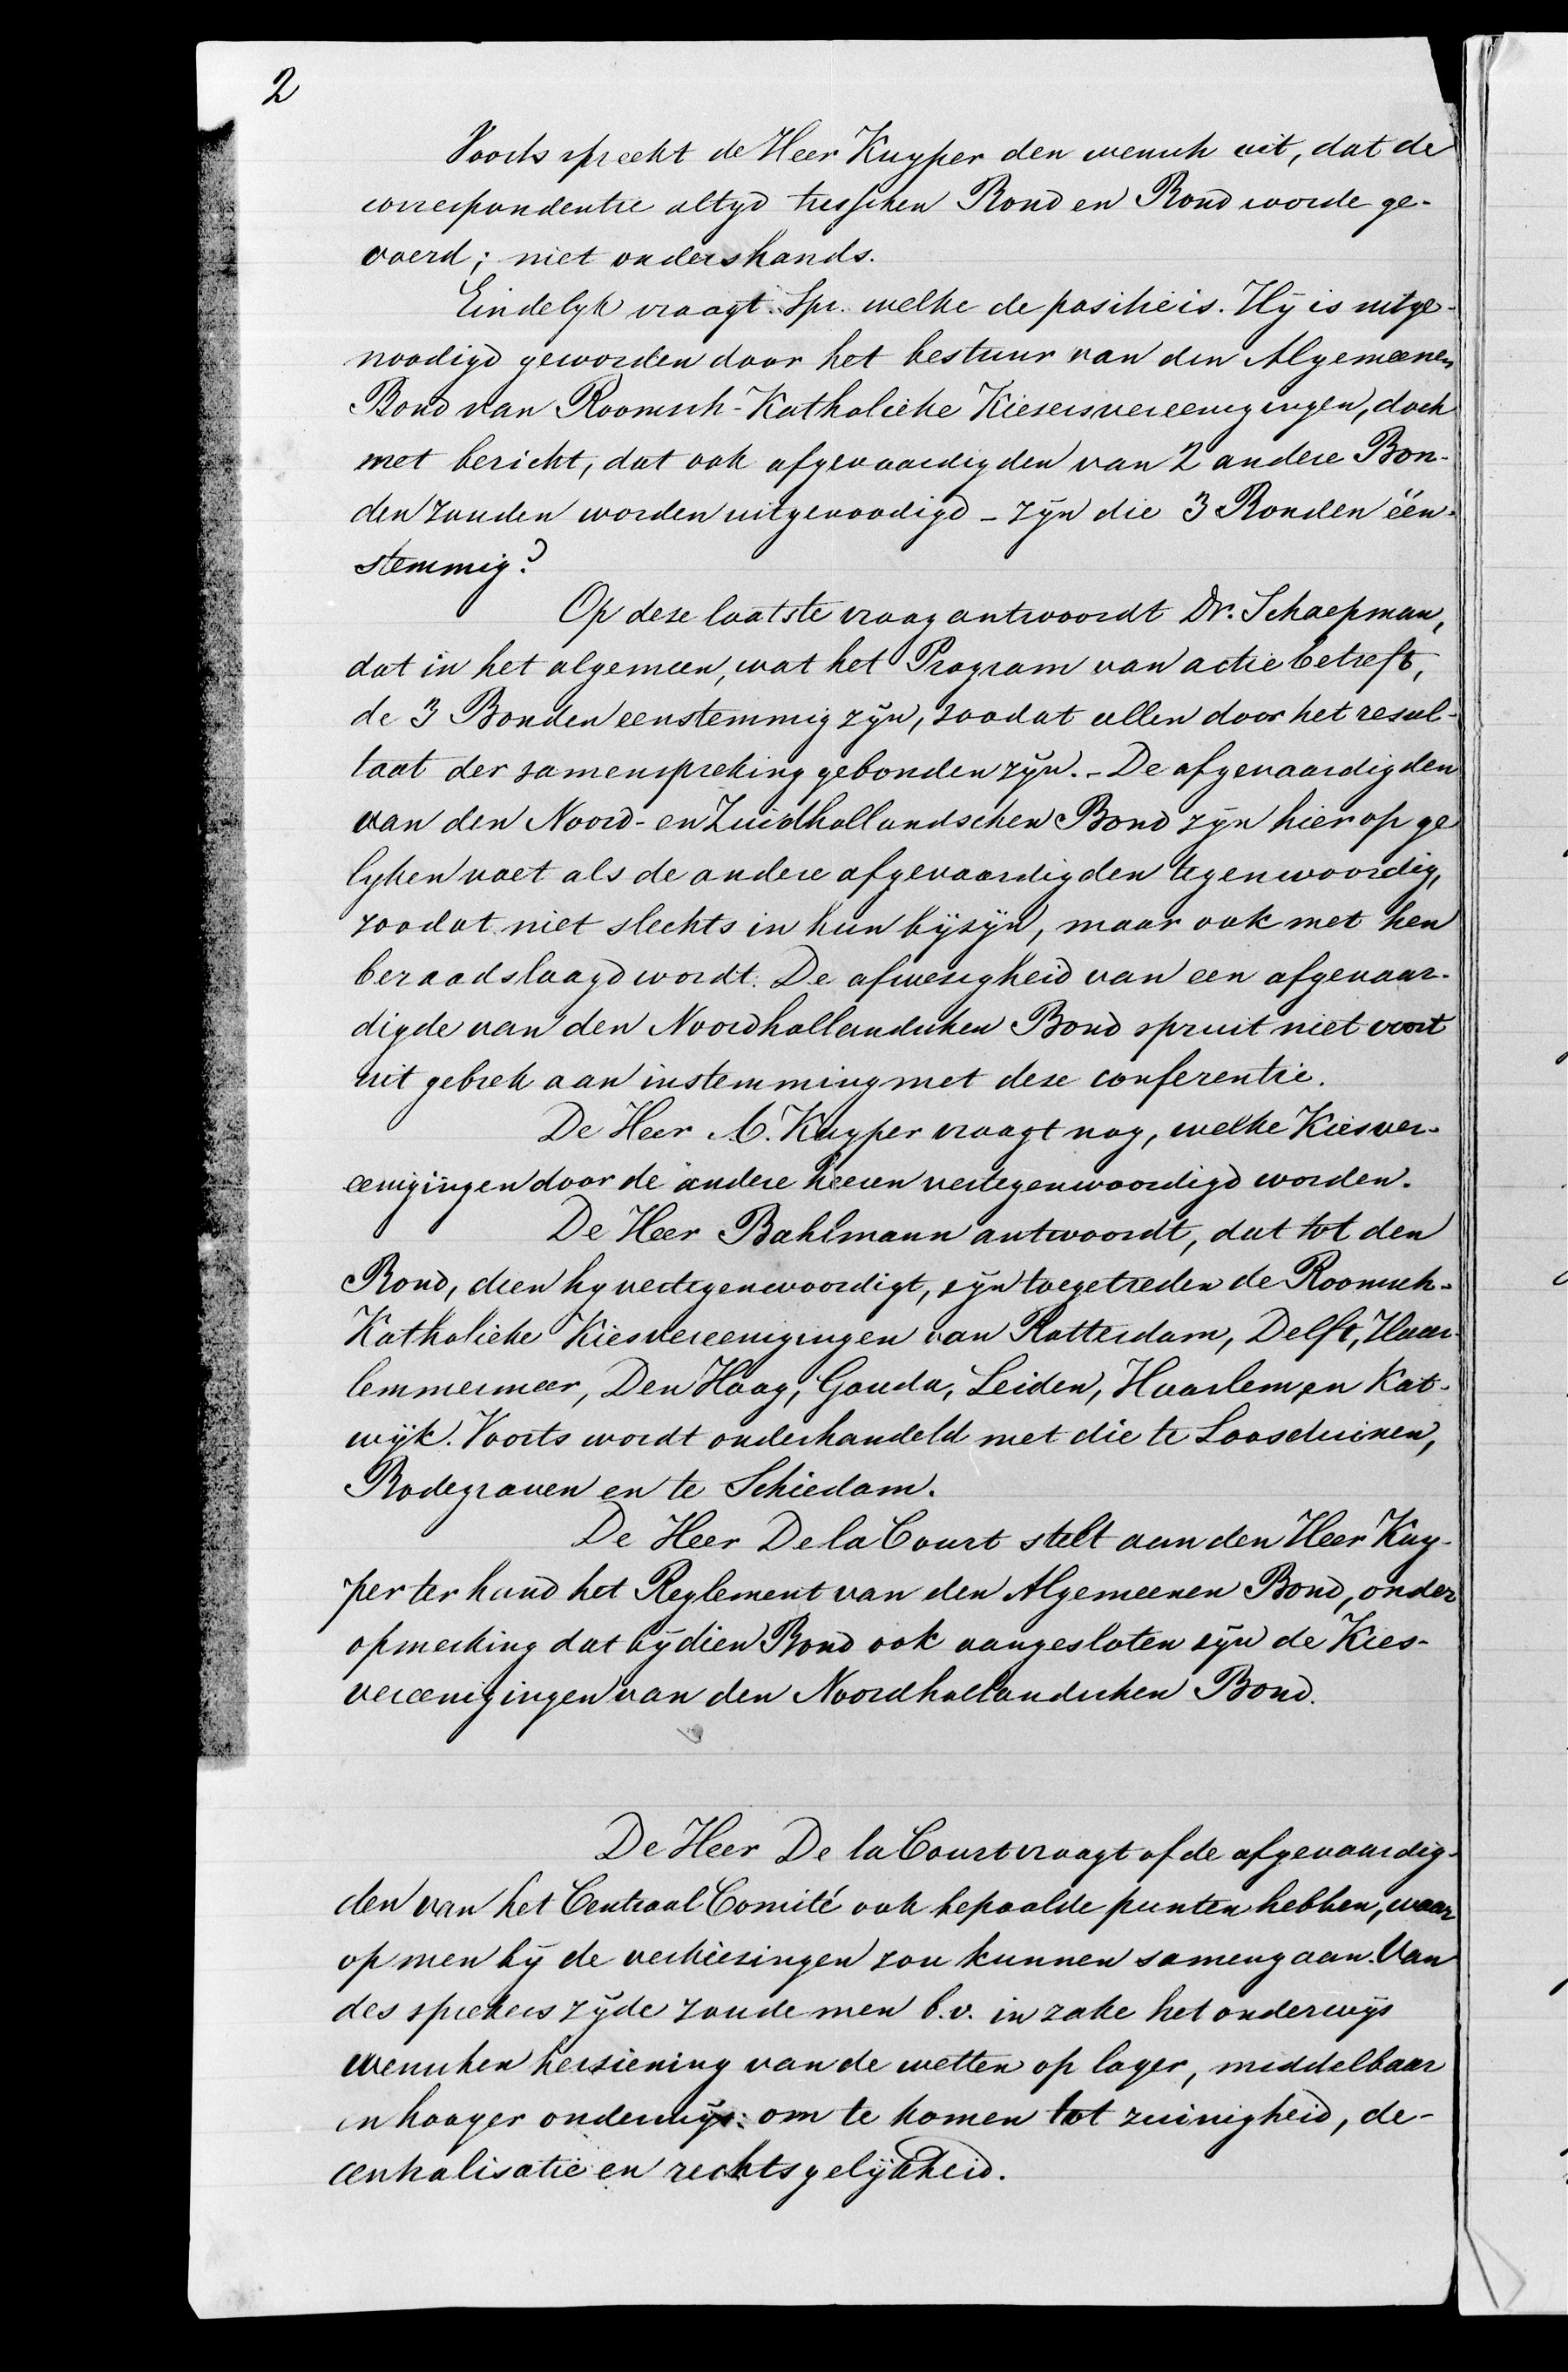 2
Voorts spreekt de Heer Kuyper den wensch uit, dat de
correspondentie altyd tusschen Bond en Bond worde ge-
voerd; niet ondershands.
Eindelyk vraagt Spr. welke de positie is. Hy is uitge-
noodigd geworden door het bestuur van den Algemeenen
Bond van Roomsch-Katholieke Kiesersvereenigingen, doch
met bericht, dat ook afgevaardigden van 2 andere Bon-
den zouden worden uitgenoodigd - zyn die 3 Bonden één-
stemmig?
Op deze laatste vraag antwoordt Dr. Schaepman,
dat in het algemeen, wat het Program van actie betreft,
de 3 Bonden eenstemmig zyn, zoodat allen door het resul-
taat der samenspreking gebonden zyn. - De afgevaardigden
van den Noord- en Zuidhollandschen Bond zyn hier op ge
lyken voet als de andere afgevaardigden tegenwoordig,
zoodat niet slechts in hun bijzyn, maar ook met hen
beraadslaagd wordt. De afwezigheid van een afgevaar-
digde van den Noordhollandschen Bond spruit niet voort
uit gebrek aan instemming met deze conferentie.
De Heer A. Kuyper vraagt nog, welke Kiesver-
eenigingen door de andere heeren vertegenwoordigd worden.
De Heer Bahlmann antwoordt, dat tot den
Bond, dien hy vertegenwoordigt, zyn toegetreden de Roomsch-
Katholieke Kiesvereenigingen van Rotterdam, Delft, Haar-
lemmermeer, Den Haag, Gouda, Leiden, Haarlem, en Kat-
wijk. Voorts wordt onderhandeld met die te Loosduinen,
Bodegraven en te Schiedam.
De Heer De la Court stelt aan den Heer Kuy-
per ter hand het Reglement van den Algemeenen Bond, onder
opmerking dat by dien Bond ook aangesloten zyn de Kies-
vereenigingen van den Noordhollandschen Bond.
De Heer De la Court vraagt of de afgevaardig-
den van het Centraal Comité ook bepaalde punten hebben, waar
op men by de verkiezingen zou kunnen samengaan. Van
des sprekers zyde zoude men b.v. in zake het onderwijs
wenschen herziening van de wetten op lager, middelbaar
en hooger onderwijs: om te komen tot zuinigheid, de-
centralisatie en rechtsgelijkheid.